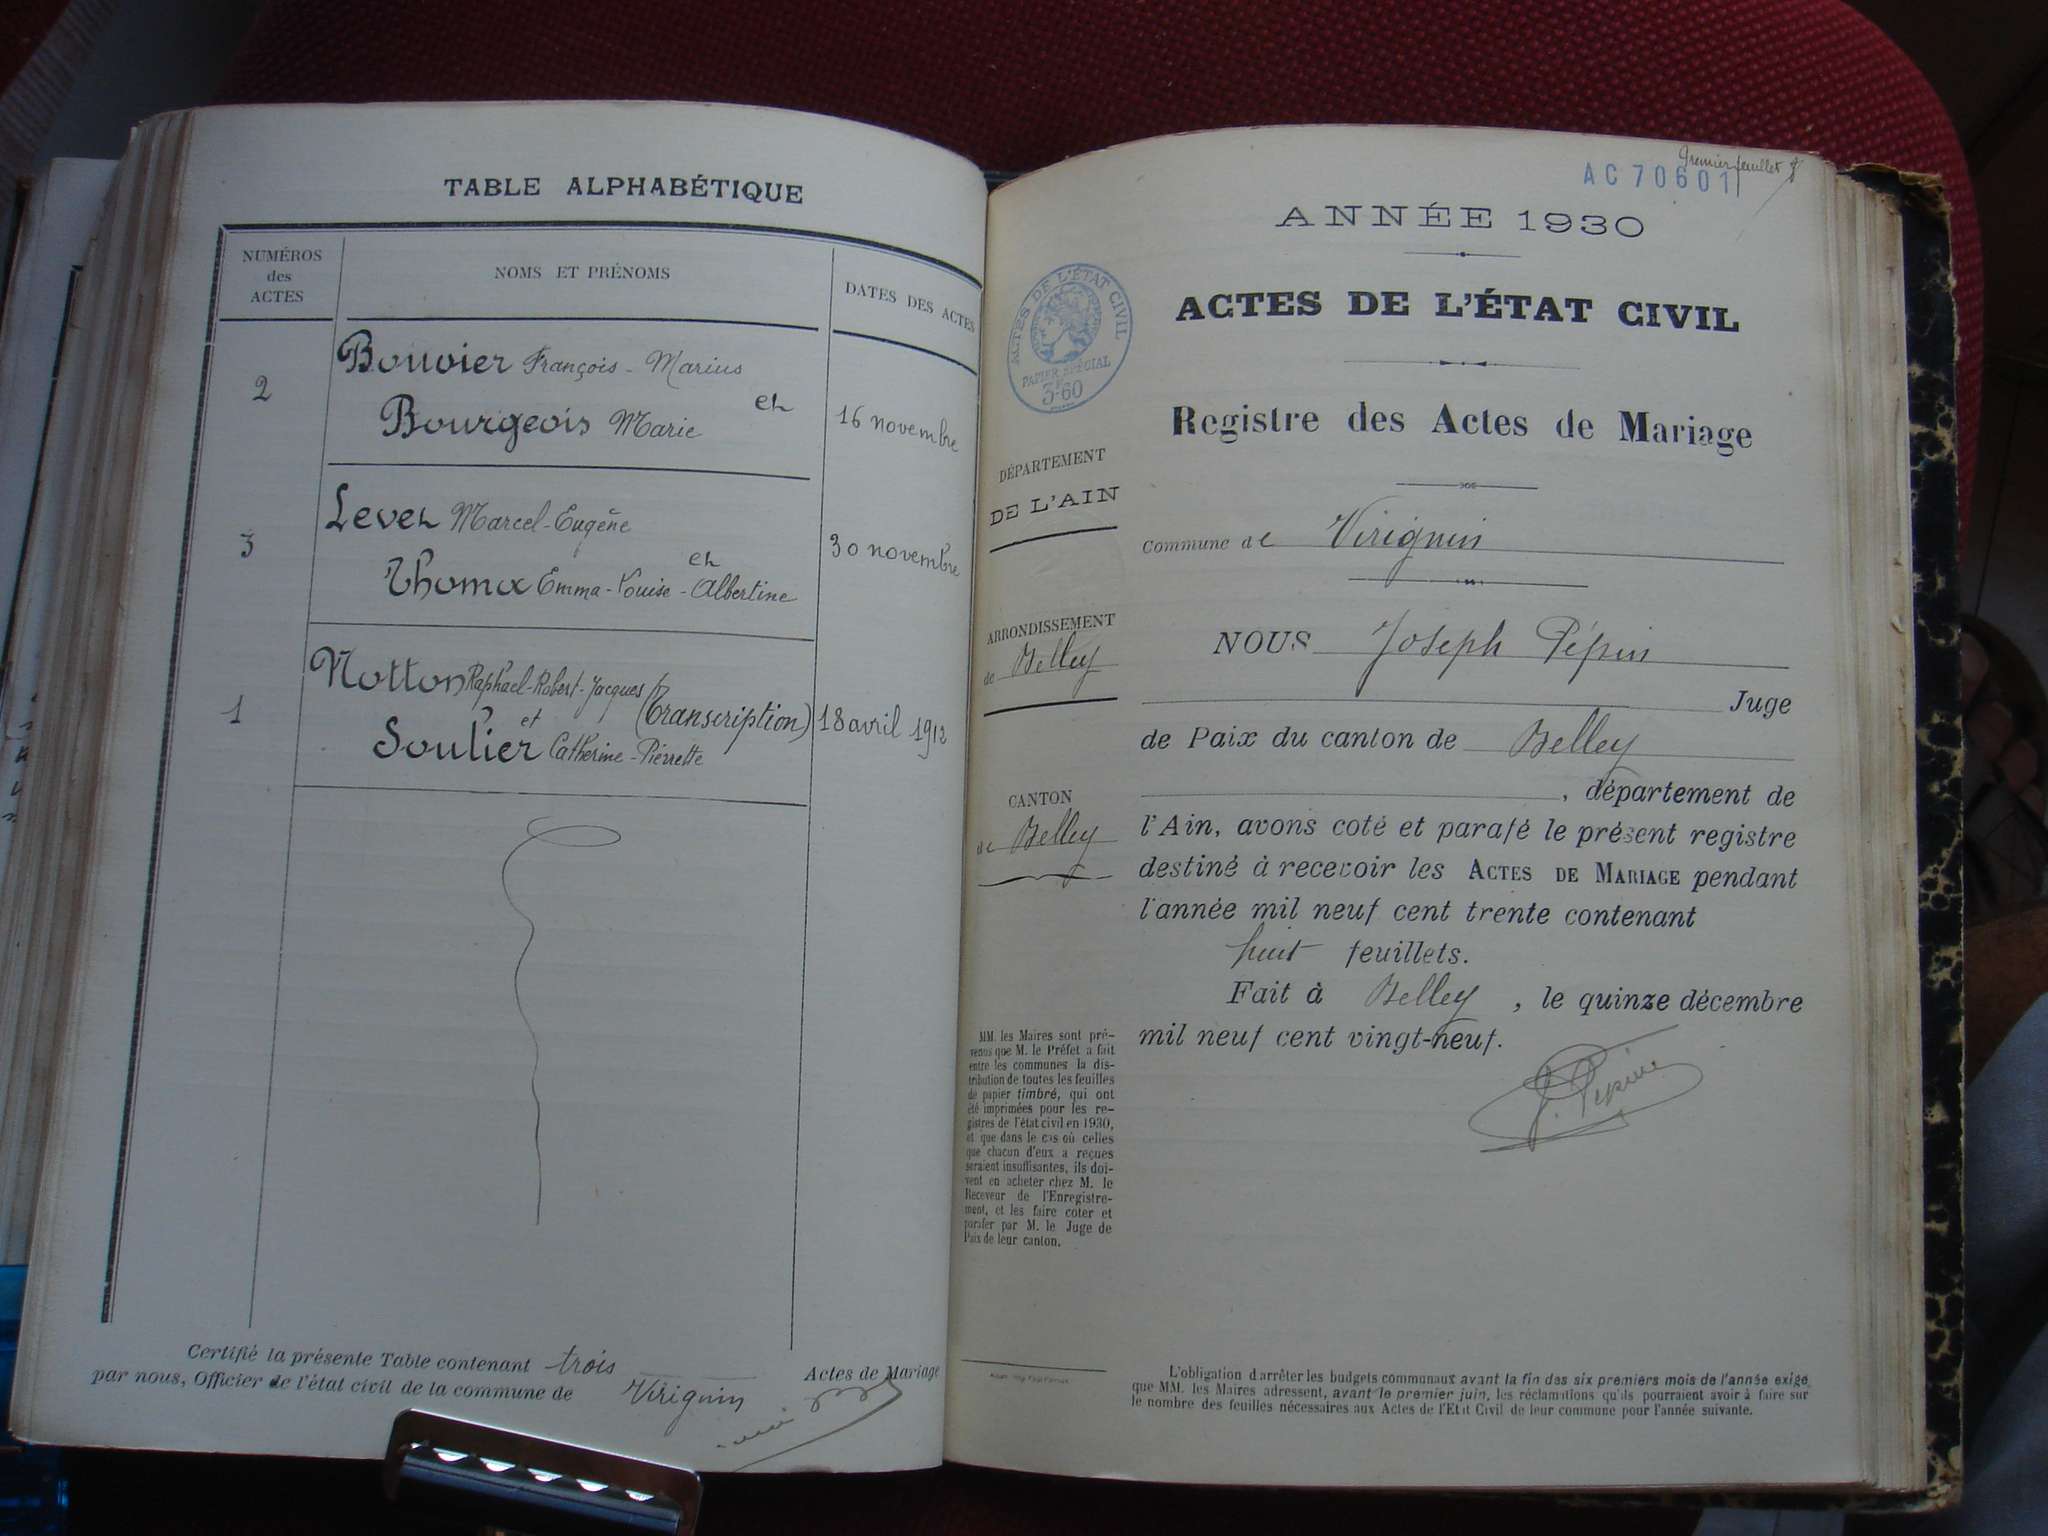 TABLE ALPHABÉTIQUE
NUMÉROS
des
ACTES
NOMS ET PRÉNOMS
DATES DES ACTES
2
Bouvier François-Marius
et
Bourgeois Marie
16 novembre
3
Level Marcel-Eugène
et
Thoma Emma-Louise-Albertine
30 novembre
1
Notton Raphael-Robert-Jacques
et
(Transcription)
18 avril 1912
Soulier Catherine-Pierrette
Certifié la présente Table contenant trois Actes de Mariage
par nous, Officier de l'état civil de la commune de Virignin
Premier feuillet
AC 70601
ANNÉE 1930
ACTES DE L'ÉTAT CIVIL
PAPIER SPÉCIAL
3F60
ACTES DE L'ÉTAT CIVIL
Registre des Actes de Mariage
DÉPARTEMENT
DE L'AIN
Commune de Virignin
ARRONDISSEMENT
de Belley
NOUS Joseph Pépin
Juge
de Paix du canton de Belley
CANTON
de Belley
, département de
l'Ain, avons coté et parafé le présent registre
destiné à recevoir les ACTES DE MARIAGE pendant
l'année mil neuf cent trente contenant
huit feuillets.
Fait à Belley, le quinze décembre
mil neuf cent vingt-neuf.
J. Pépin
MM. les Maires sont pré-
venus que M. le Préfet a fait
entre les communes la dis-
tribution de toutes les feuilles
de papier timbré, qui ont
été imprimées pour les re-
gistres de l'état civil en 1930,
et que dans le cas où celles
que chacun d'eux a reçues
seraient insuffisantes, ils doi-
vent en acheter chez M. le
Receveur de l'Enregistre-
ment, et les faire coter et
parafer par M. le Juge de
Paix de leur canton.
L'obligation d'arrêter les budgets communaux avant la fin des six premiers mois de l'année exige
que MM. les Maires adressent, avant le premier juin, les réclamations qu'ils pourraient avoir à faire sur
le nombre des feuilles nécessaires aux Actes de l'Etat Civil de leur commune pour l'année suivante.